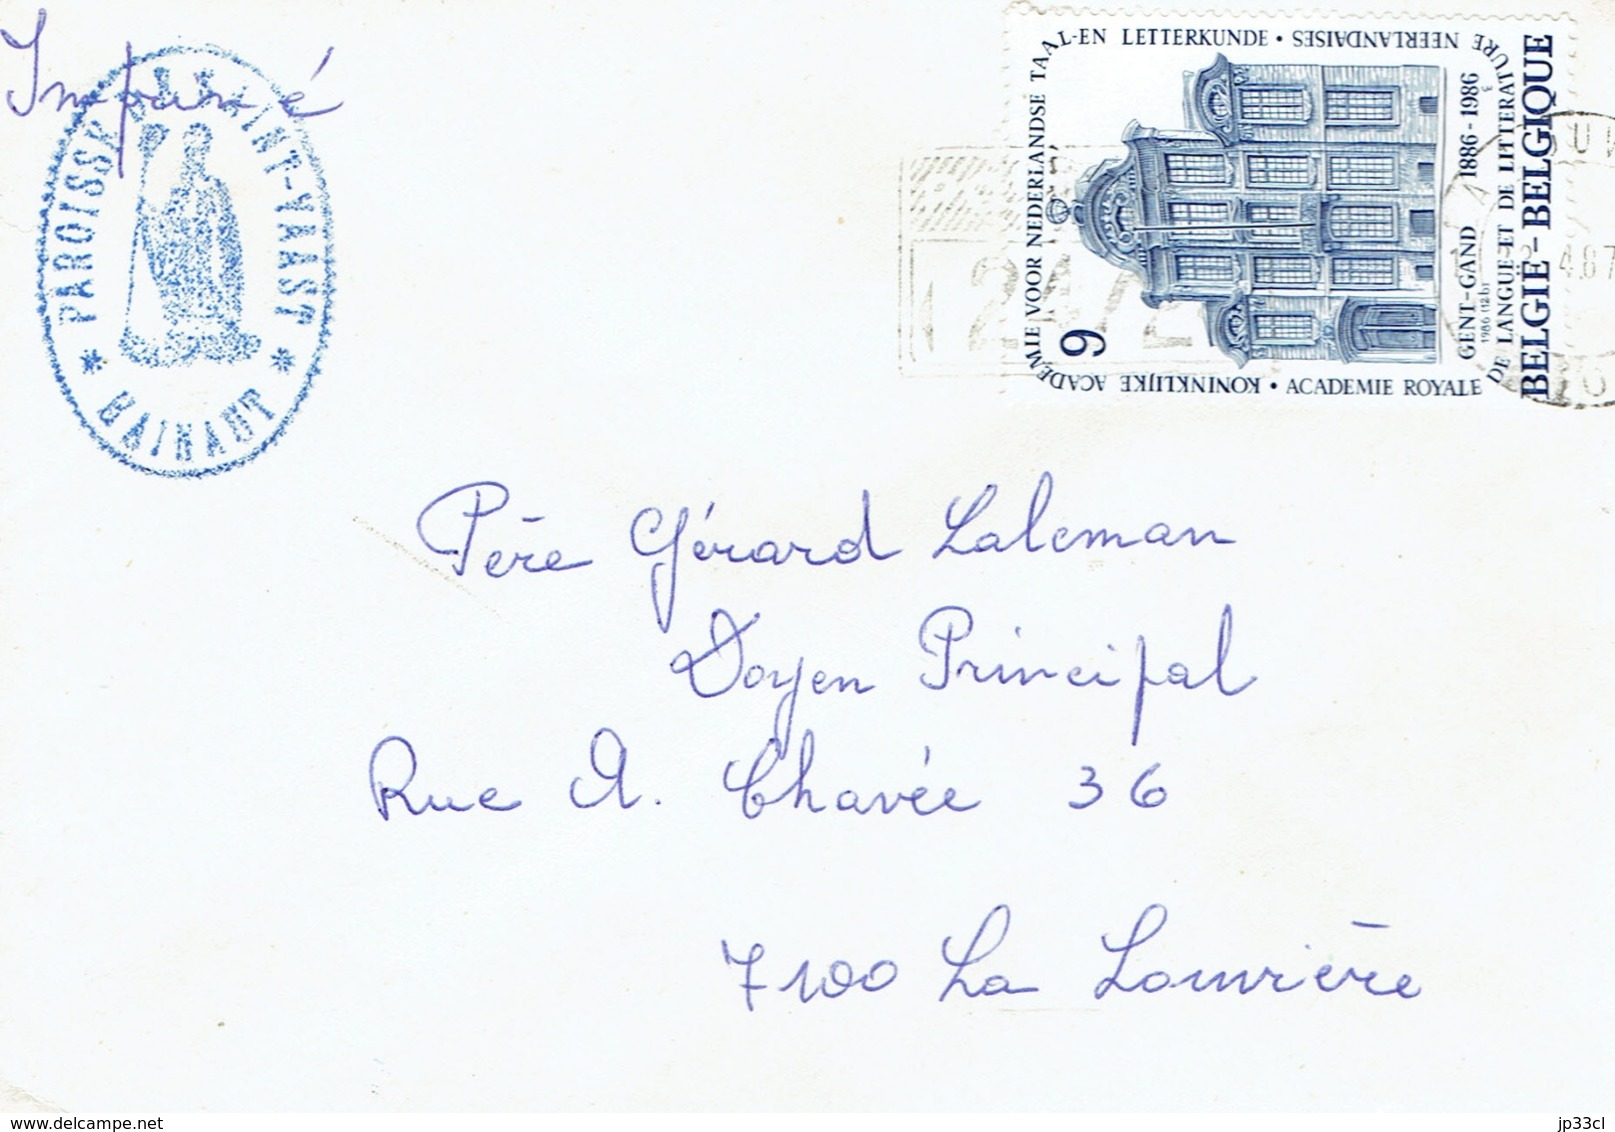 Imprimé
PAROISSE SAINT-VAAST
* HAINAUT *
KONINKLIJKE ACADEMIE VOOR NEDERLANDSE TAAL-EN LETTERKUNDE •
ACADEMIE ROYALE DE LANGUE ET DE LITTERATURE NEERLANDAISES
GENT-GAND 1886-1986
1986 (12)b1
BELGIË-BELGIQUE
9
4.87
Père Gérard Laleman
Doyen Principal
Rue A. Chavée 36
7100 La Louvière
delcampe.net
jp33cl